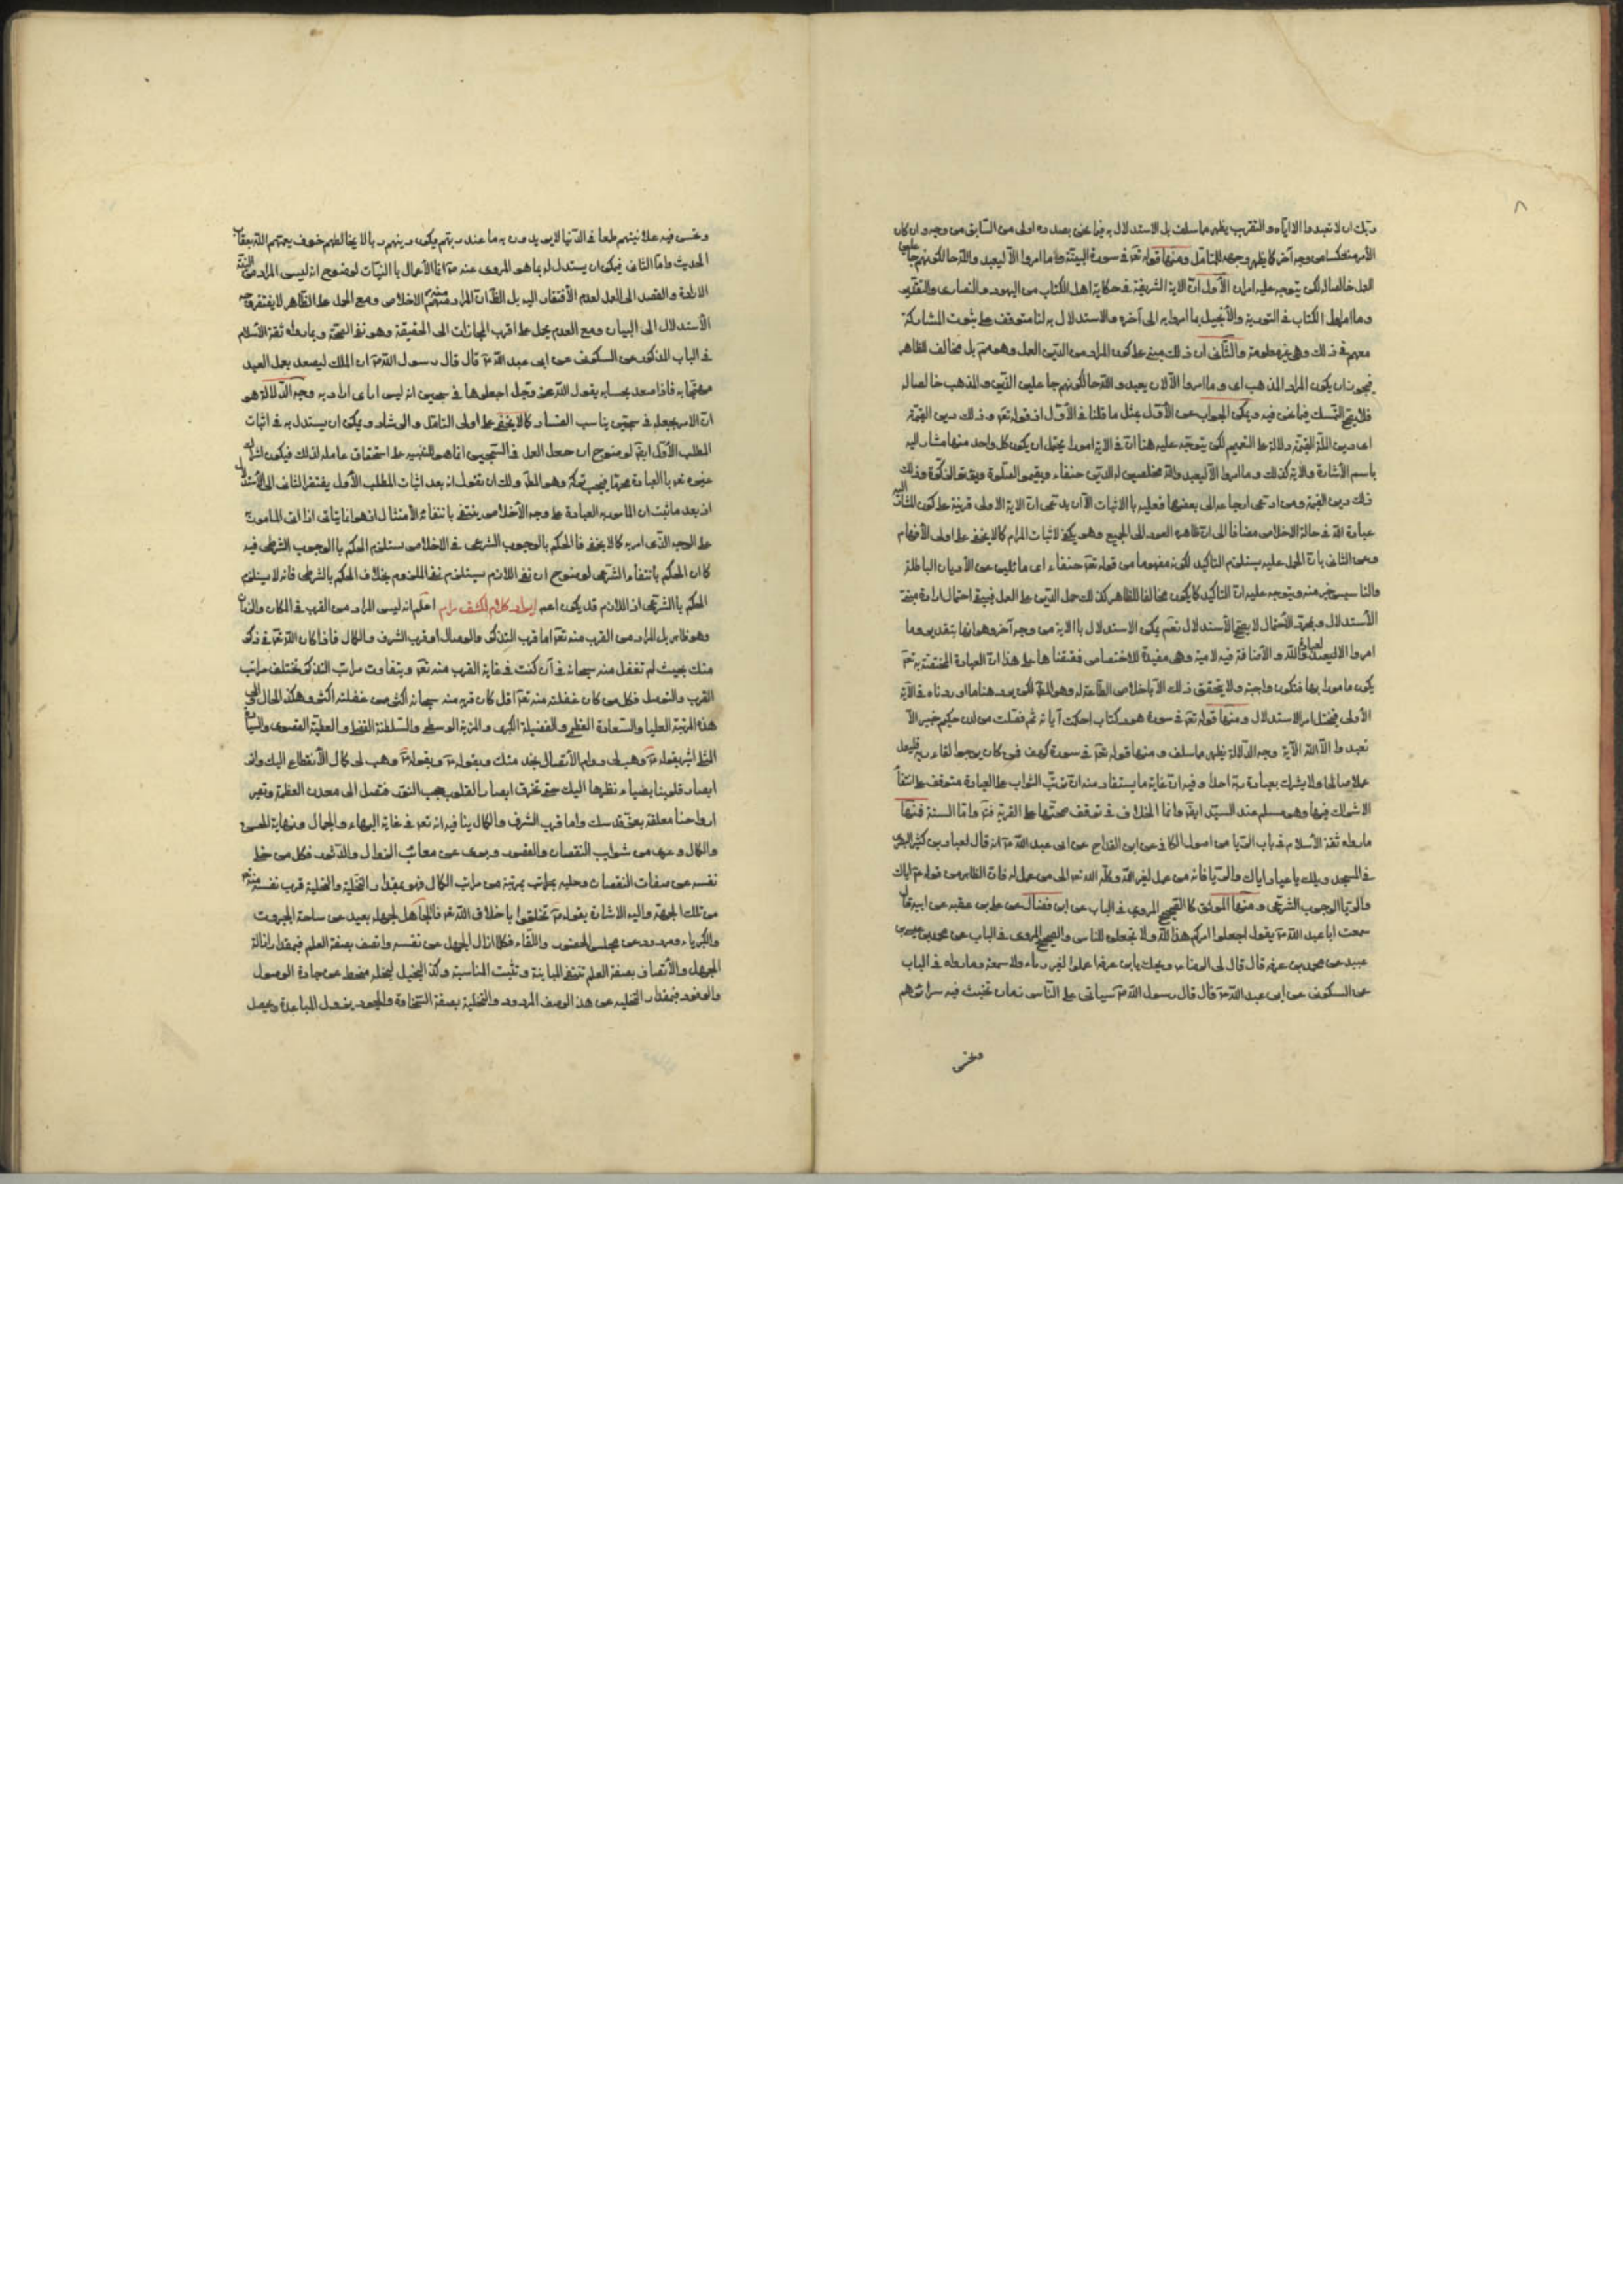 ٨
ربك ان لا تعبدوا الا اياه والتقريب يظهر مما سلف بل الاستدلال به فيما نحن بصدده اولى من السابق من وجه وان كان
الأمر منعكسا من وجه آخر كما يظهر وجهه للمتامل ومنها قوله تعالى في سورة البينة وما امروا الا ليعبدوا الله حالكونهم جاعلين
العمل خالصا له لكن يتوجه عليه امران الأول ان الاية الشريفة في حكاية اهل الكتاب من اليهود والنصارى والتقدير
وما امر اهل الكتاب في التورية والأنجيل بما امروا به الى آخره والاستدلال به لنا متوقف على ثبوت المشاركة
معهم في ذلك وهي غير معلومة والثاني ان ذلك مبنى على كون المراد من الدين العمل وهو مم بل مخالف للظاهر
فيجوز ان يكون المراد المذهب اى وما امروا الا لان يعبدوا الله حالكونهم جاعلين الدين والمذهب خالصا له
فلا يتم التمسك فيما نحن فيه ويمكن الجواب عن الأول بمثل ما قلنا في الأول اذ قوله تعالى وذلك دين القيمة
اى دين الملة القيمة دلالة على التعميم لكن يتوجه عليه هنا ان في الاية امورا يحتمل ان يكون كل واحد منها مشار اليه
باسم الأشارة والاية كذلك وما امروا الا ليعبدوا الله مخلصين له الدين حنفاء ويقيموا الصلوة ويؤتوا الزكوة وذلك
ذلك دين القيمة ومن ادعى ارجاعه الى بعضها فعليه بالاثبات الا ان يدعى ان الاية الاولى قرينة على كون المشار اليه
عبادة الله في حالة الاخلاص مضافا الى ان ظاهره العود الى الجميع وهو يكفي لاثبات المرام كما لا يخفى على اولى الأفهام
وعن الثاني بان الحمل عليه يستلزم التاكيد لكونه مفهوما من قوله تعالى حنفاء اى مائلين عن الأديان الباطلة
والتاسيس خير منه ويتوجه عليه ان التاكيد كما يكون مخالفا للظاهر كذلك حمل الدين على العمل فيبقى احتمال ارادة
الأستدلال وبمجرد الأحتمال لا يصح الأستدلال نعم يمكن الاستدلال بالاية من وجه آخر وهو انها بتقدير وما
امروا الا لعبادة الله والأضافة فيه لامية وهي مفيدة للاختصاص فمقتضاها على هذا ان العبادة المختصة به تعالى
يكون مامورا بها فتكون واجبة ولا يتحقق ذلك الا باخلاص الطاعة له وهو المط لكن يرد هنا ما اوردناه في الآية
الأولى فيختل امر الاستدلال ومنها قوله تعالى في سورة هود كتاب احكمت آياته ثم فصلت من لدن حكيم خبير الا
تعبدوا الا الله الآية وجه الدلالة يظهر مما سلف ومنها قوله تعالى في سورة كهف فمن كان يرجوا لقاء ربه فليعمل
عملا صالحا ولا يشرك بعبادة ربه احدا وفيه ان غاية ما يستفاد منه ان ترتب الثواب على العبادة متوقف على انتفاء
الاشراك فيها وهو مسلم عند السيد ايضا وانما الخلاف في توقف صحتها على القربة فتم واما السنة فمنها
ما رواه ثقة الأسلام في باب الريا من اصول الكافي عن ابن القداح عن ابي عبد الله ع انه قال لعباد بن كثير البصري
في المسجد ويلك يا عباد اياك والريا فانه من عمل لغير الله وكله الله تعالى الى من عمل له فان الظاهر من قوله ع اياك
والريا الوجوب الشرعي ومنها الموثق كالصحيح المروى في الباب عن ابن فضال عن على بن عقبه عن ابيه قال
سمعت ابا عبد الله ع يقول اجعلوا امركم هذا لله ولا تجعلوه للناس والصحيح المروى في الباب عن محمد بن عيسى بن
عبيد عن محمد بن عرفه قال قال لى الرضا ع ويحك يابن عرفه اعملوا لغير رياء ولا سمعة وما رواه في الباب
عن السكوني عن ابي عبد الله ع قال قال رسول الله ص سياتى على الناس زمان تخبث فيه سرائرهم
وتحسن
وتحسن فيه علانيتهم طمعا في الدنيا لا يريدون به ما عند ربهم يكون دينهم رياء لا يخالطهم خوف يعمهم الله بعقاب
الحديث واما الثاني فيمكن ان يستدل له بما هو المروى عنه ع انما الأعمال بالنيات لوضوح انه ليس المراد من النية
الارادة والقصد الى العمل لعدم الأفتقار اليه بل الظ ان المراد منها الاخلاص ومع الحمل على الظاهر لا يفتقر
الأستدلال الى البيان ومع العدم يحمل على اقرب المجازات الى الحقيقة وهو نفي الصحة وبما رواه ثقة الاسلام
في الباب المذكور عن السكوني عن ابي عبد الله ع قال قال رسول الله ص ان الملك ليصعد بعمل العبد
مبتهجا به فاذا صعد بحسناته يقول الله عز وجل اجعلوها في سجين انه ليس اياى اراد به وجه الدلالة هو
ان الامر بجعله في سجين يناسب الفساد كما لا يخفى على اولى التامل والرشاد ويمكن ان يستدل به في اثبات
المطلب الأول ايضا لوضوح ان جعل العمل في السجين انما هو للتنبيه على استحقاق عامله لذلك فيكون اشراك
غيره تعالى بالعبادة محرما فيجب تركه وهو المط ولك ان تقول انه بعد اثبات المطلب الأول لا يفتقر الثاني الى الأستدلال
اذ بعد ما ثبت ان المامور به العبادة على وجه الأخلاص ينتفي بانتفائه الأمتثال اذ هو انما يتاتى اذا اتى المامور به
على الوجه الذى امر به كما لا يخفى فالحكم بالوجوب الشرعي في الاخلاص يستلزم الحكم بالوجوب الشرطى فيه
كما ان الحكم بانتفاء الشرطى لوضوح ان نفي اللازم يستلزم نفي الملزوم بخلاف الحكم بالشرطى فانه لا يستلزم
الحكم بالشرعى اذ اللازم قد يكون اعم ايراد كلام لكشف مرام اعلم انه ليس المراد من القرب في المكان والزمان
وهو ظاهر بل المراد من القرب منه تعالى اما قرب التذكر والوصال او قرب الشرف والكمال فاذا كان الله تعالى في ذكر
منك بحيث لم تغفل منه سبحانه في آن كنت في غاية القرب منه تعالى ويتفاوت مراتب التذكر تختلف مراتب
القرب والتوصل فكل من كان غفلته منه تعالى اقل كان قربه منه سبحانه اكثر ممن غفلته اكثر وهكذا الحال الى
هذه المرتبة العليا والسعادة العظمى والفضيلة الكبرى والمزية الوسطى والسلطنة العظمى والعطية القصوى
اشير بقوله ع وهب لى دوام الأتصال بخدمتك وبقوله ع وهب لى كمال الأنقطاع اليك وانر
ابصار قلوبنا بضياء نظرها اليك حتى تخرق ابصار القلوب حجب النور فتصل الى معدن العظمة وتصير
ارواحنا معلقة بعز قدسك واما قرب الشرف والكمال بيانه انه تعالى في غاية البهاء والجمال ونهاية الحسن
والكمال وعرى من شوايب النقصان والقصور وبرى عن معائب الزوال والدثور فكل من خلى
نفسه عن صفات النقصان وحليه بمراتب بمرتبة من مراتب الكمال فهو بمقدار التخلية والتحلية قرب نفسه منه تعالى
من تلك الجهة واليه الاشارة بقوله ع تخلقوا باخلاق الله تعالى فالجاهل لجهله بعيد عن ساحة الجبروت
والكبرياء ومردود عن مجلس الحضور واللقاء فكلما ازال الجهل عن نفسه واتصف بصفة العلم فبمقدار ازالة
الجهل والأتصاف بصفة العلم تنتفي المباينة وتثبت المناسبة وكذا البخيل لبخله منحط عن جادة الوصول
والوفود فبمقدار التخلية عن هذا الوصف المردود والتحلية بصفة السخاوة والجود يزول المباعدة ويحصل